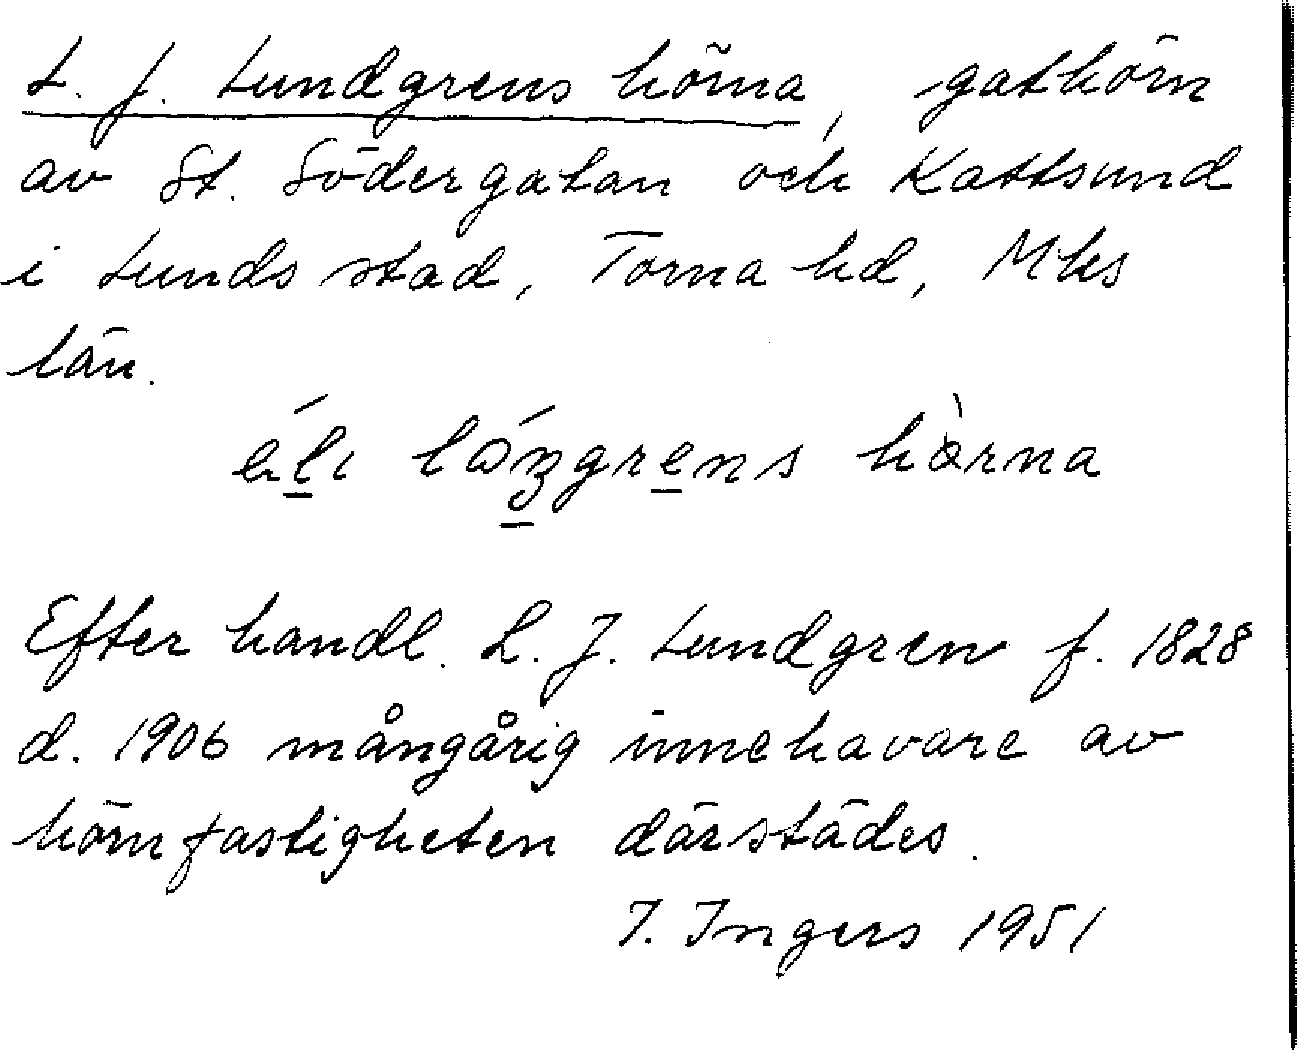 L. J. Lundgrens hörna, gathörn
av St. Södergatan och Kattsund
i Lunds stad, Torna hd, Mhs
län.
hörna
Efter handl. L. J. Lundgren f. 1828
d. 1906 mångårig innehavare av
hörnfastigheten därstädes.
I. Ingers 1951